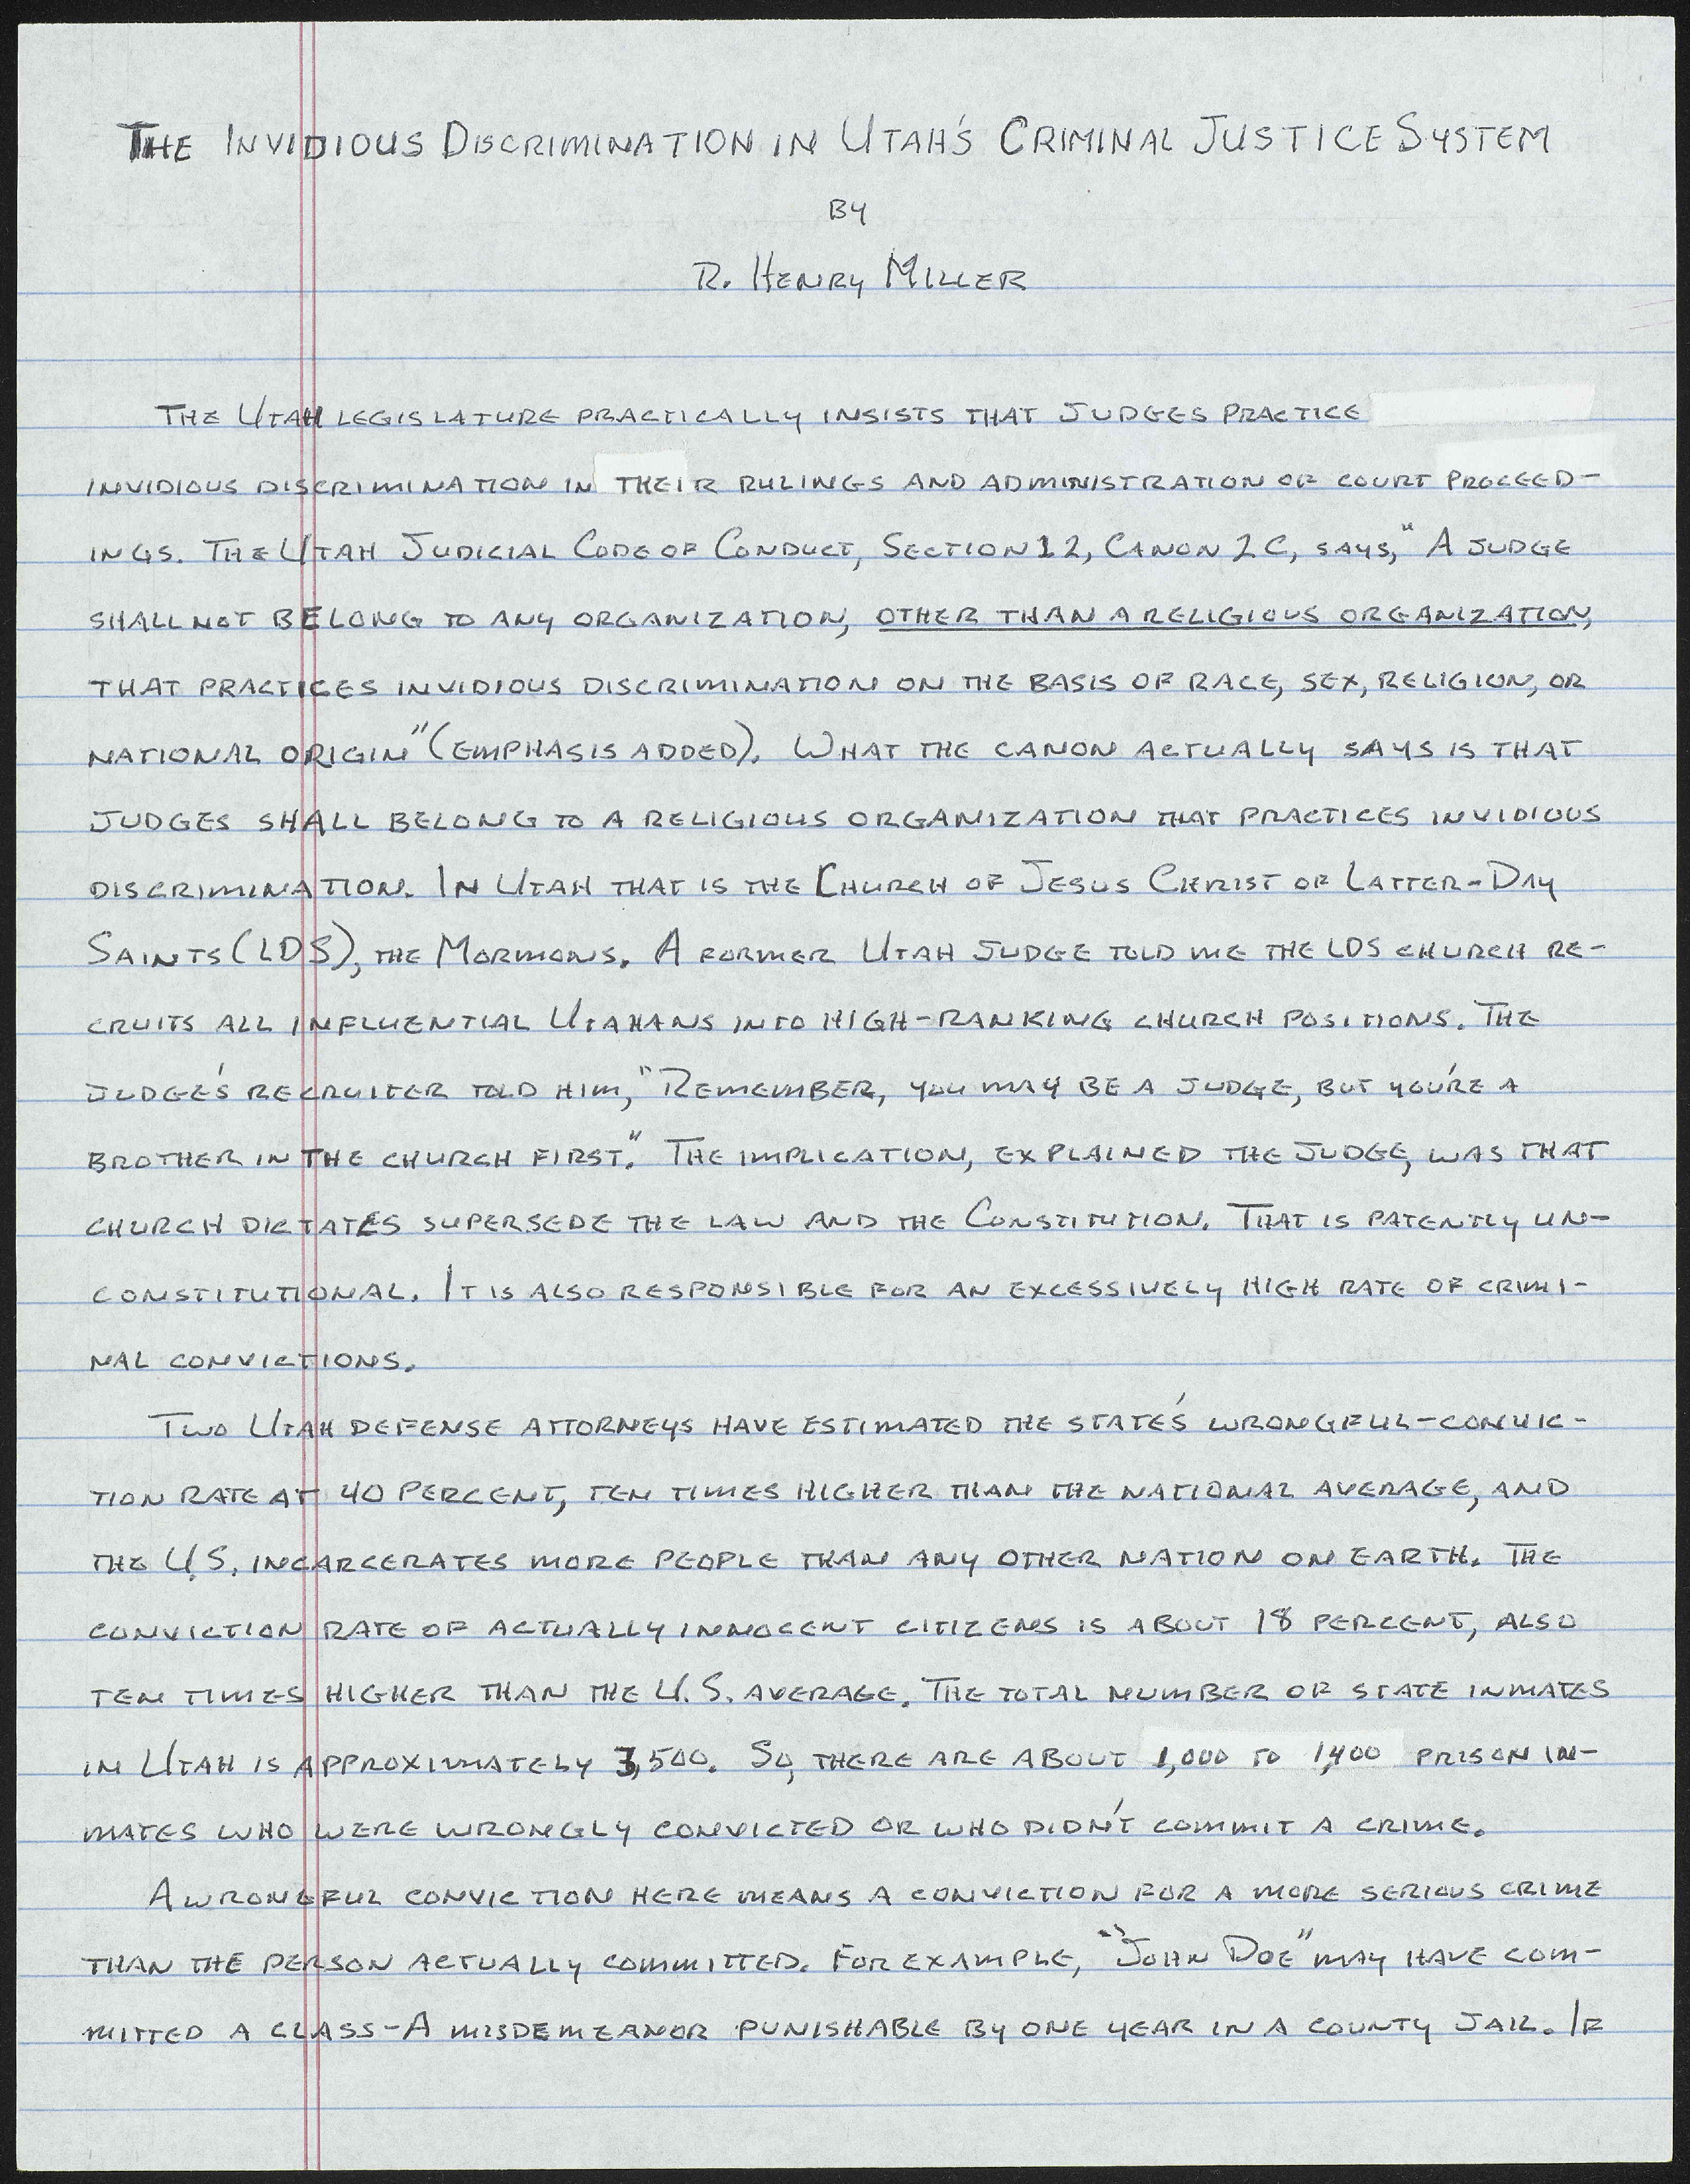 THE INVIDIOUS DISCRIMINATION IN UTAH'S CRIMINAL JUSTICE SYSTEM
BY
R. HENRY MILLER
THE UTAH LEGISLATURE PRACTICALLY INSISTS THAT JUDGES PRACTICE
INVIDIOUS DISCRIMINATION IN THEIR RULINGS AND ADMINISTRATION OF COURT PROCEED-
INGS. THE UTAH JUDICIAL CODE OF CONDUCT, SECTION 12, CANON 2C, SAYS, "A JUDGE
SHALL NOT BELONG TO ANY ORGANIZATION, OTHER THAN A RELIGIOUS ORGANIZATION,
THAT PRACTICES INVIDIOUS DISCRIMINATION ON THE BASIS OF RACE, SEX, RELIGION, OR
NATIONAL ORIGIN" (EMPHASIS ADDED). WHAT THE CANON ACTUALLY SAYS IS THAT
JUDGES SHALL BELONG TO A RELIGIOUS ORGANIZATION THAT PRACTICES INVIDIOUS
DISCRIMINATION. IN UTAH THAT IS THE CHURCH OF JESUS CHRIST OF LATTER-DAY
SAINTS (LDS), THE MORMONS. A FORMER UTAH JUDGE TOLD ME THE LDS CHURCH RE-
CRUITS ALL INFLUENTIAL UTAHANS INTO HIGH-RANKING CHURCH POSITIONS. THE
JUDGE'S RECRUITER TOLD HIM, "REMEMBER, YOU MAY BE A JUDGE, BUT YOU'RE A
BROTHER IN THE CHURCH FIRST." THE IMPLICATION, EXPLAINED THE JUDGE, WAS THAT
CHURCH DICTATES SUPERSEDE THE LAW AND THE CONSTITUTION. THAT IS PATENTLY UN-
CONSTITUTIONAL. IT IS ALSO RESPONSIBLE FOR AN EXCESSIVELY HIGH RATE OF CRIMI-
NAL CONVICTIONS.
TWO UTAH DEFENSE ATTORNEYS HAVE ESTIMATED THE STATE'S WRONGFUL-CONVIC-
TION RATE AT 40 PERCENT, TEN TIMES HIGHER THAN THE NATIONAL AVERAGE, AND
THE U.S. INCARCERATES MORE PEOPLE THAN ANY OTHER NATION ON EARTH. THE
CONVICTION RATE OF ACTUALLY INNOCENT CITIZENS IS ABOUT 18 PERCENT, ALSO
TEN TIMES HIGHER THAN THE U.S. AVERAGE. THE TOTAL NUMBER OF STATE INMATES
IN UTAH IS APPROXIMATELY 3,500. SO, THERE ARE ABOUT 1,000 TO 1,400 PRISON IN-
MATES WHO WERE WRONGLY CONVICTED OR WHO DIDN'T COMMIT A CRIME.
A WRONGFUL CONVICTION HERE MEANS A CONVICTION FOR A MORE SERIOUS CRIME
THAN THE PERSON ACTUALLY COMMITTED. FOR EXAMPLE, "JOHN DOE" MAY HAVE COM-
MITTED A CLASS-A MISDEMEANOR PUNISHABLE BY ONE YEAR IN A COUNTY JAIL. IF